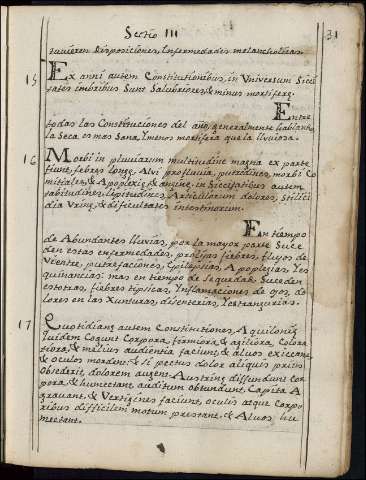 Sectio III
31
tuvieren disposiciones, Enfermedades melancholicas.
15
Ex anni autem Constitutionibus, in Universum Sicci
tates imbribus sunt Salubriores, & minus mortiferę.
Entre
todas las Constituciones del año, generalmente hablando,
la Seca es mas Sana, y menos mortifera que la lluviosa.
16
Morbi in pluviarum multitudine magna ex parte
fiunt, febres longę, Alvi profluvia, putredines, morbi Co
mitiales, & Apoplexię, & anginę, in Siccitatibus autem
tabitudines, lipitudines, Articularum dolores, Stilici
dia Urinę, & difficultates intestinorum.
En tiempo
de Abundantes lluvias, por la mayor parte Suce
den estas enfermedades, prolijas fiebres, flujos de
Vientre, putrefaciones, Epilepsias, Apoplegias, Y es
quinancias: mas en tiempo de sequedad, Suceden
estotras, fiebres tipsicas, Ynflamaciones de ojos, do
lores en las Xunturas, disenterias, Y estrangurias.
17
Quotidianę autem Constitutiones, Aquilonię
quidem Cogunt Corpora, firmiora, & agiliora, Colora
tiora, & melius audientia faciunt, & alvos exiccant,
& oculos mordent, & si pectus dolor aliquis prius
obsederit, dolorem augent. Austrinę diffundunt Cor
pora, & humectant, auditum obtundunt, Capita A
gravant, & Vertigines faciunt, oculis atque Corpo
ribus difficilem motum prestant, & Alvos hu
mectant.